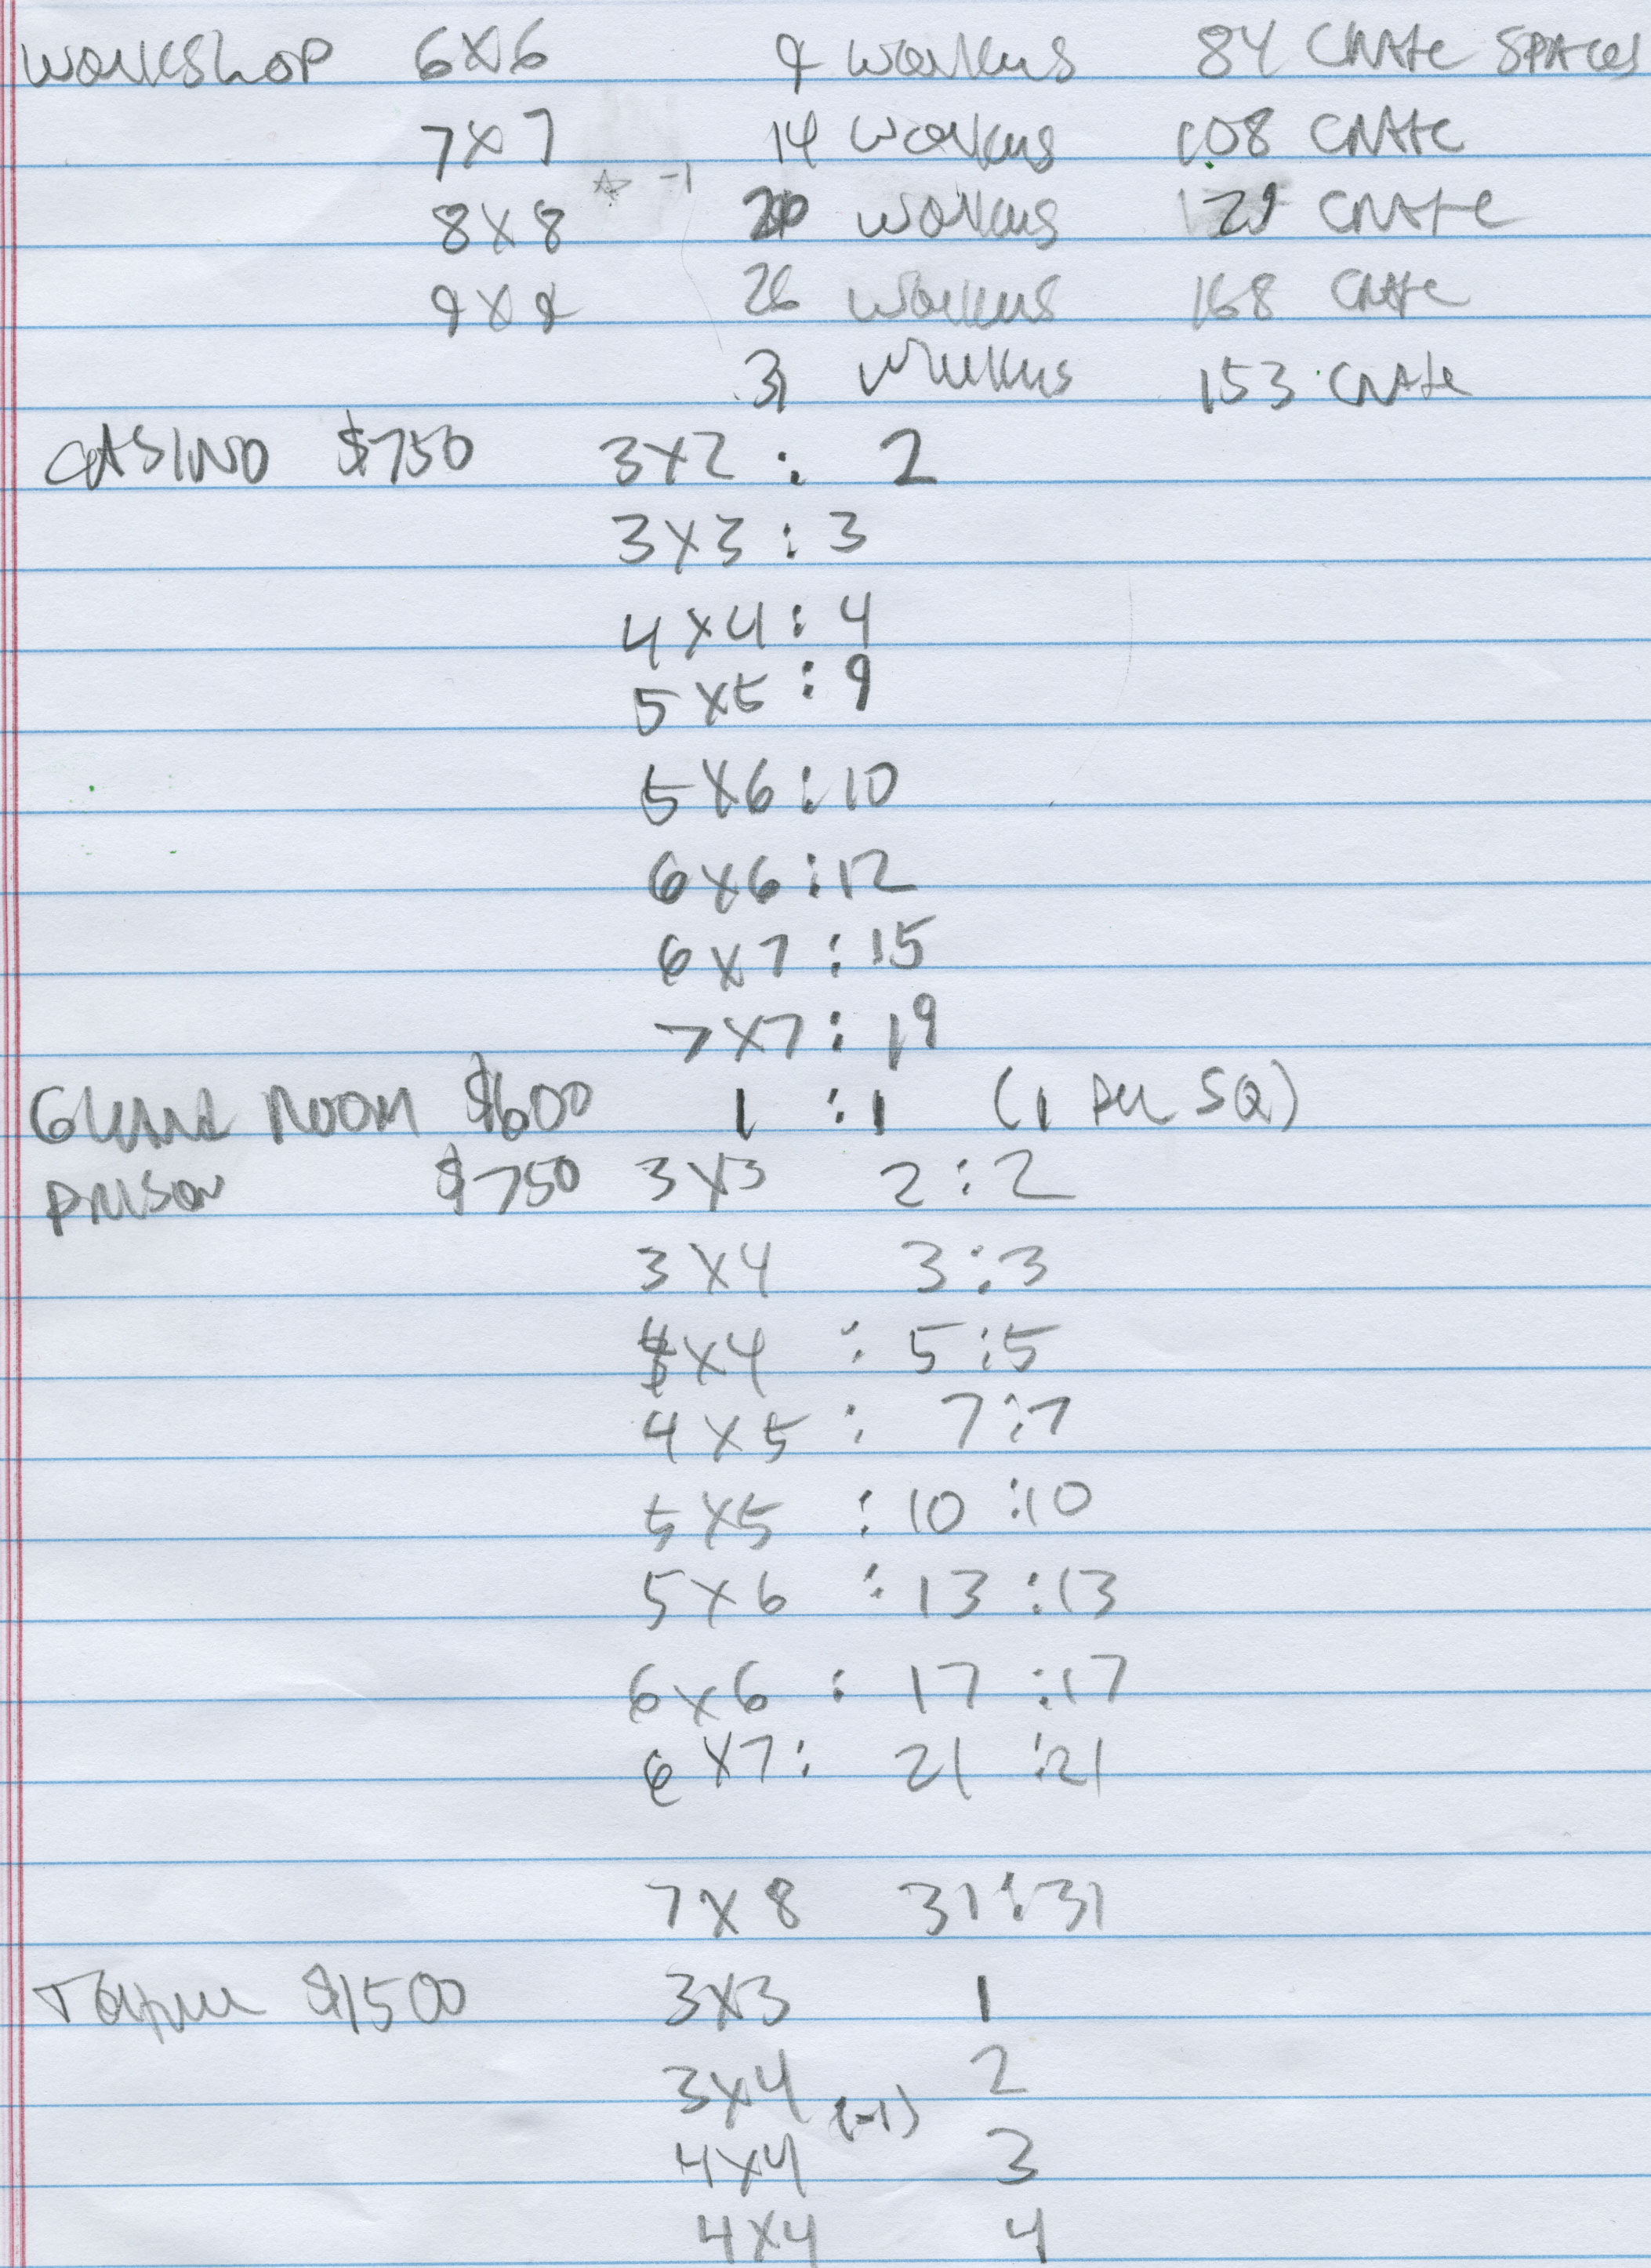 WORKSHOP 6X6 9 WORKERS 84 CRATE SPACES
7X7 14 WORKERS 108 CRATE
☆ -1
8X8 20 WORKERS 129 CRATE
9X9 26 WORKERS 168 CRATE
31 WORKERS 153 CRATE
CASINO $750 3X2 : 2
3X3 : 3
4X4 : 4
5X5 : 9
5X6 : 10
6X6 : 12
6X7 : 15
7X7 : 19
GUARD ROOM $600 1 : 1 (1 PER SQ)
PRISON $750 3X3 2 : 2
3X4 3 : 3
4X4 : 5 : 5
4X5 : 7 : 7
5X5 : 10 : 10
5X6 : 13 : 13
6X6 : 17 : 17
6X7 : 21 : 21
7X8 31 : 31
$1500 3X3 1
3X4 2
(-1)
4X4 3
4X4 4